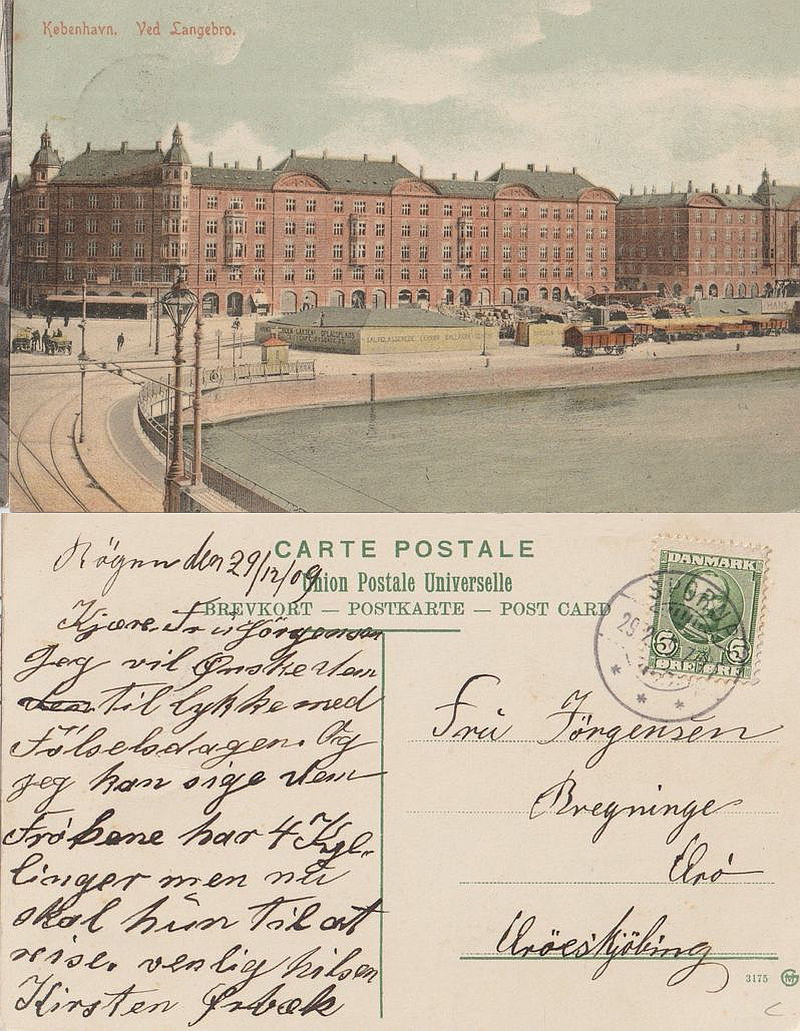 København. Ved Langebro.
Rögen den 29/12/09
CARTE POSTALE
Union Postale Universelle
BREVKORT — POSTKARTE — POST CARD
Kjære Frú Jörgensen
Jeg vil Ønske dem
til lykke med
Fölselsdagen. Og
jeg kan sige dem
har 4 Kyl-
linger men nú
skal hún til at
reise. venlig hilsen
Kirsten Ørbæk
DANMARK
5 5
ØRE ØRE
Frú Jörgensen
Bregninge
Ærö
Æröeskjöbing
3175